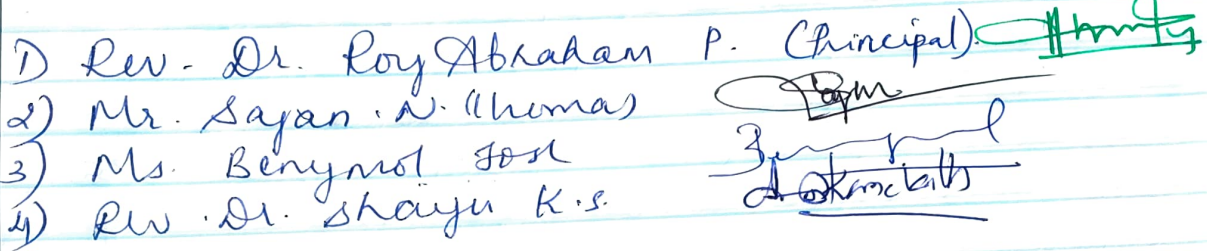 1) Rev. Dr. Roy Abraham P. (Principal)
2) Mr. Sajan . N. Thomas
3) Ms. Benymol Jose
4) Rev. Dr. Shaiju K.S.